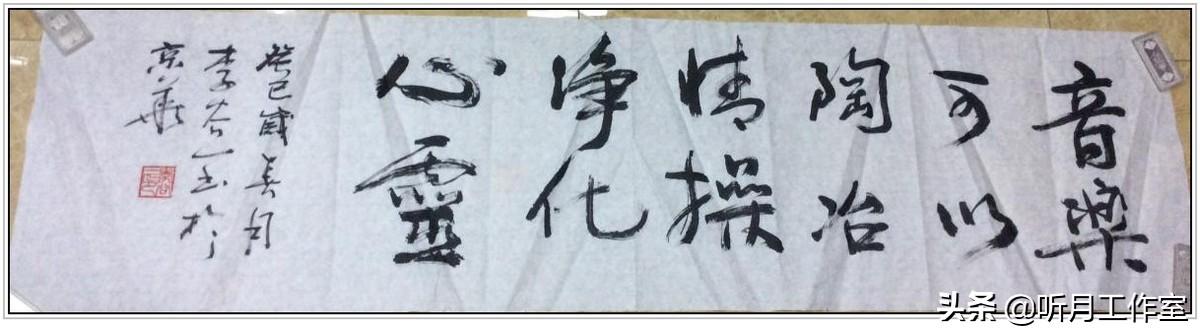 音樂
可以
陶冶
情操
净化
心靈
癸巳歲春月
李谷一书於
京華
头条 @听月工作室